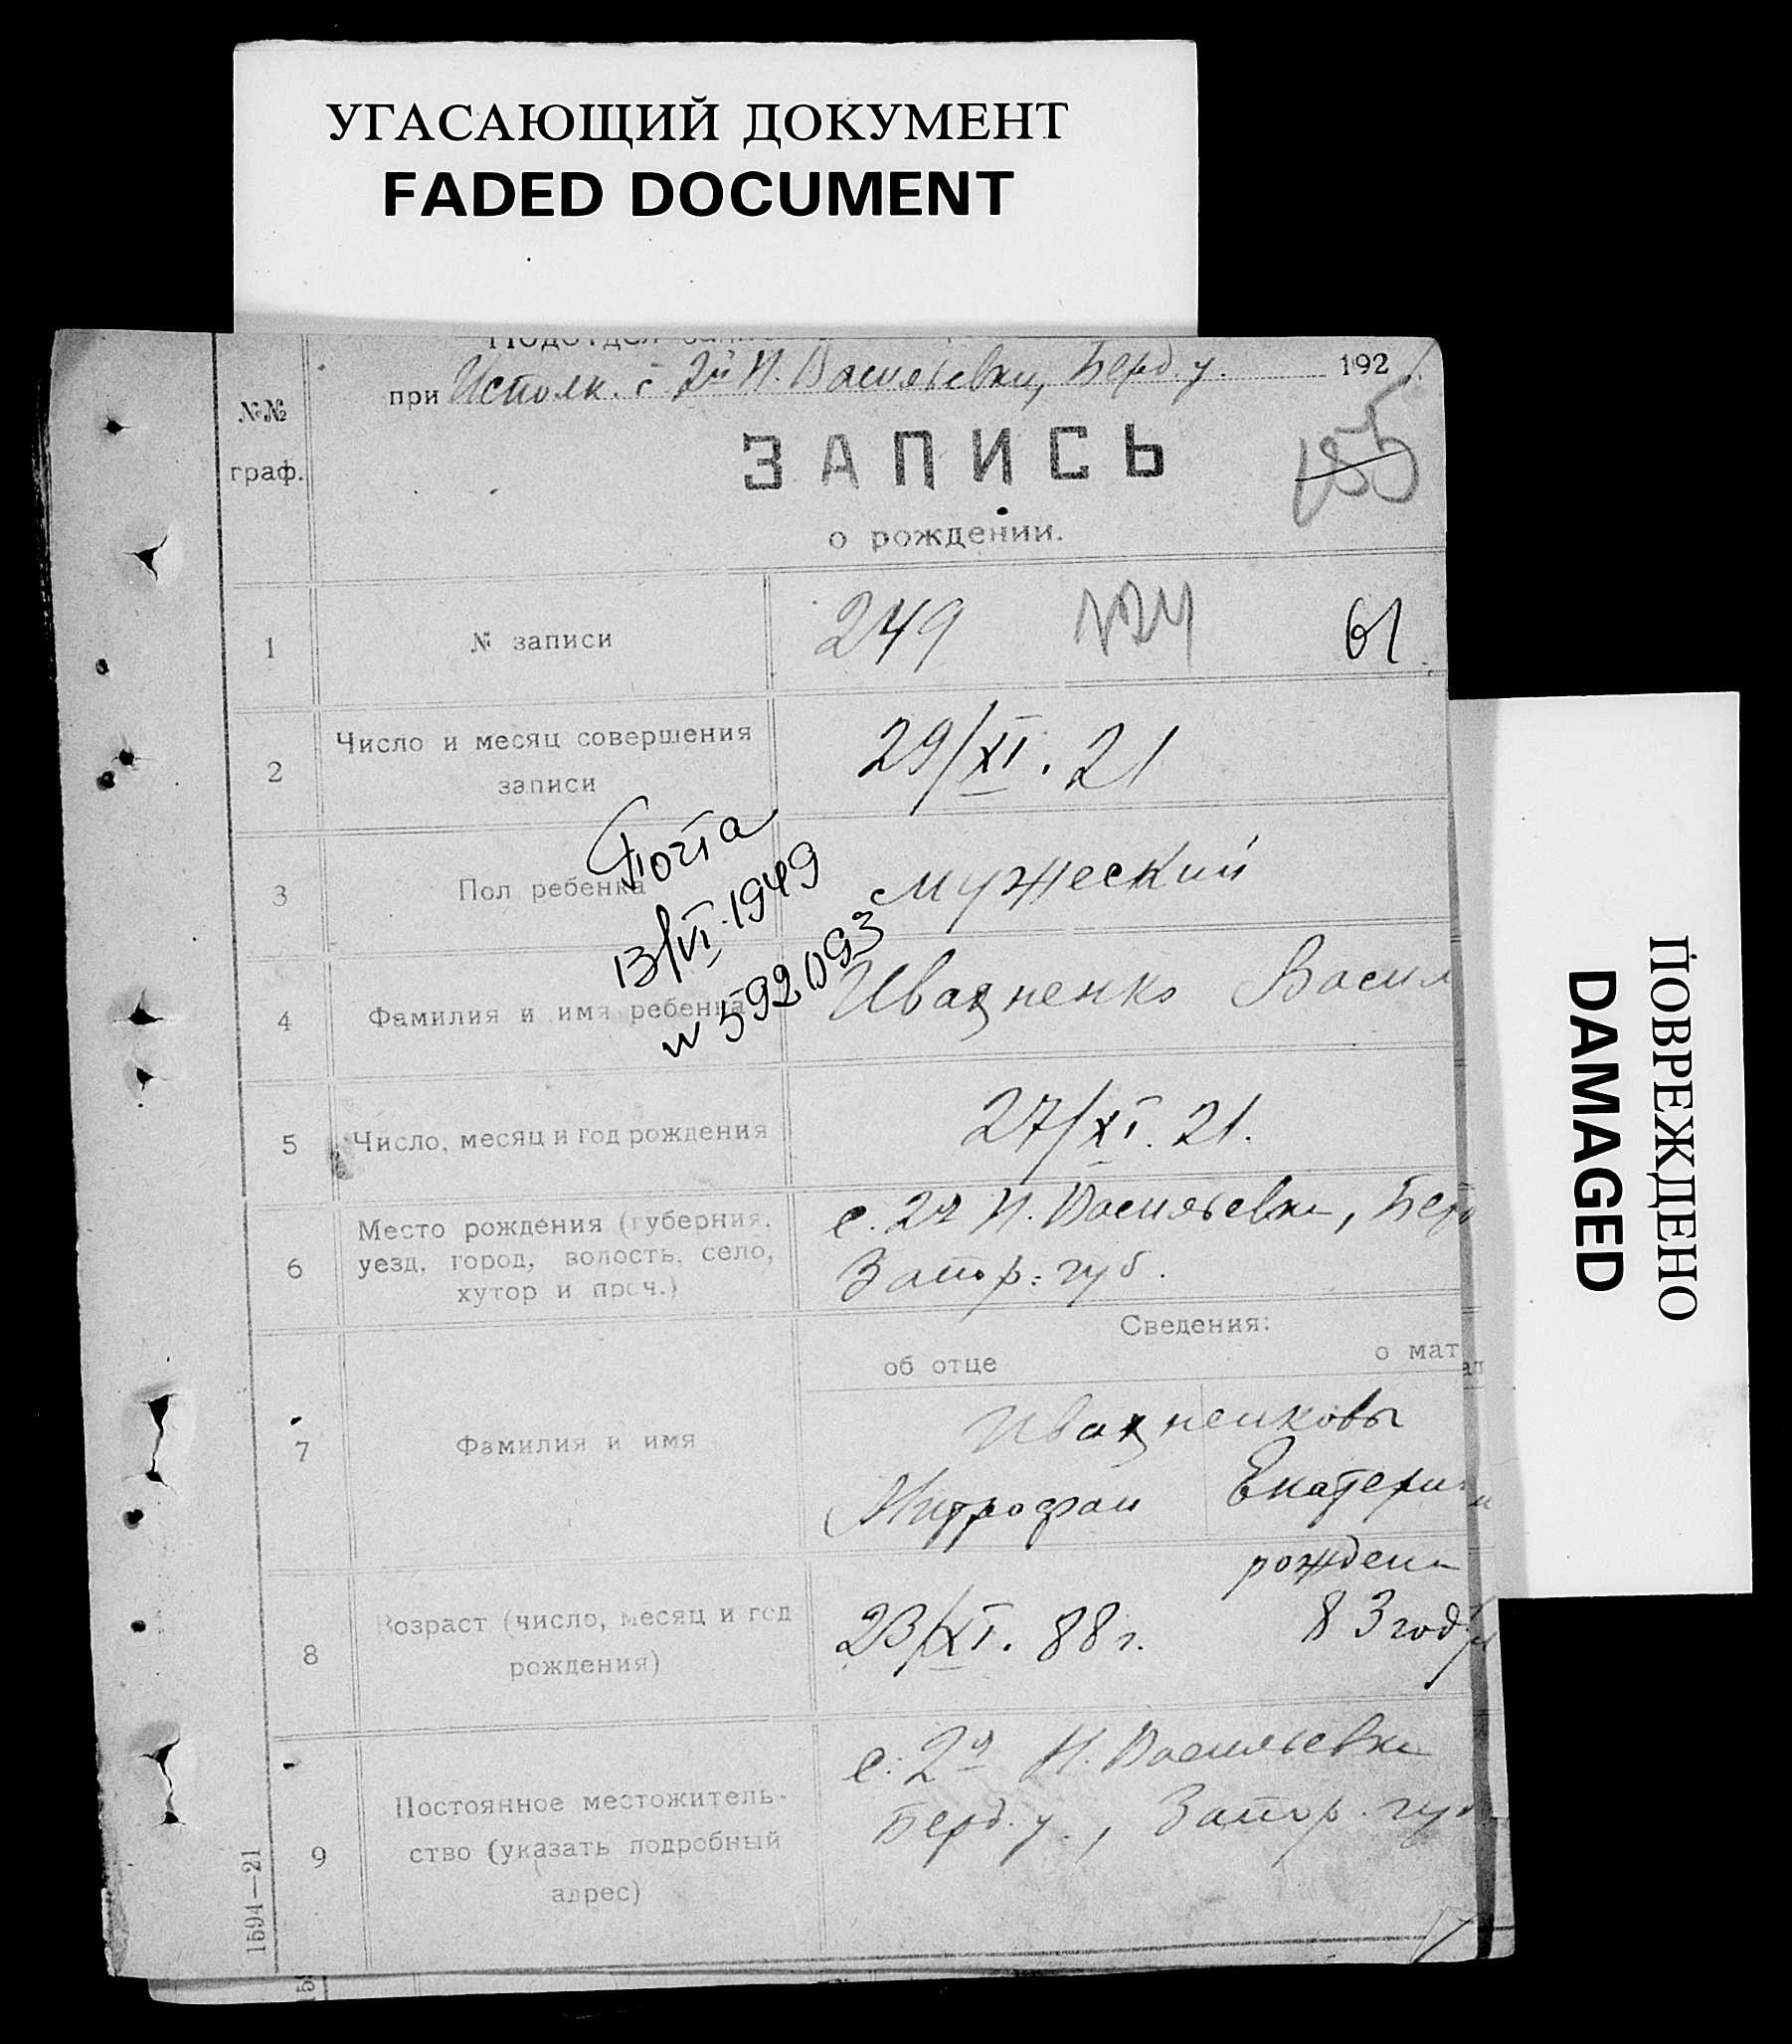 УГАСАЮЩИЙ ДОКУМЕНТ
FADED DOCUMENT
при Исполк. с. 2й Н. Васильевки, Берд. у. 192
№№
граф.
ЗАПИСЬ
о рождении.
155
1 № записи 249 61
2 Число и месяц совершения
записи
29/XI. 21
3 Пол ребенка мужеский
Почта
13/VI.1949
№ 592093
4 Фамилия и имя ребенка Ивахненко Васил
5 Число, месяц и год рождения 27/XI. 21.
6 Место рождения (губерния,
уезд, город, волость, село,
хутор и проч.)
с. 2я Н. Васильевка, Берд
Запор. губ.
Сведения:
об отце о мат
7 Фамилия и имя
Ивахненковы
Митрофан Екатерин
8 Возраст (число, месяц и год
рождения)
23/XI. 88 г.
рожден
83 год
9 Постоянное местожитель-
ство (указать подробный
адрес)
с. 2я Н. Васильевка
Берд. у., Запор. губ
1594—21
ПОВРЕЖДЕНО
DAMAGED